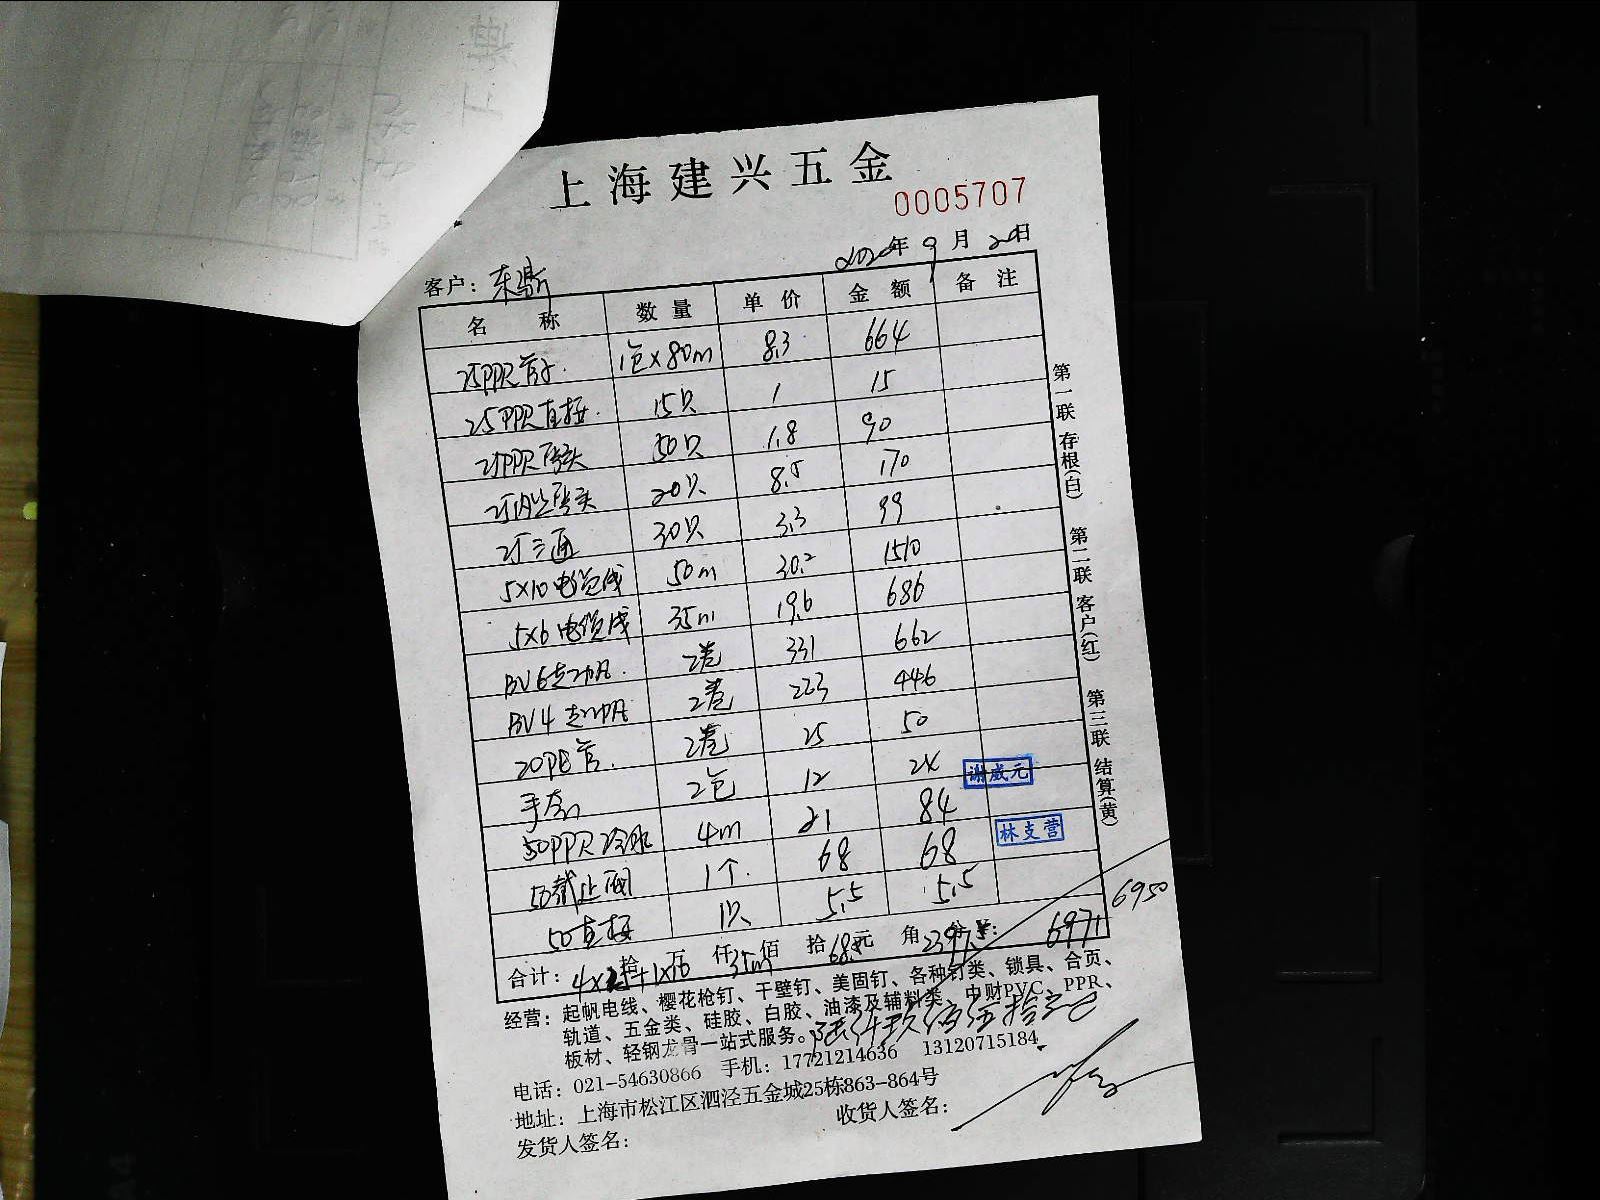 上海建兴五金
0005707
2020年9月20日
客户：东鼎
名称 数量 单价 金额 备注
25PPR管子. 1包×80m 8.3 664
25PPR直接. 15只 1 15
25PPR弯头 50只 1.8 90
25内丝弯头 20只 8.5 170
25三通 30只 3.3 99
5×10电缆线 50m 30.2 1510
5×6电缆线 35m 19.6 686
BV6起帆. 2卷 331 662
BV4起帆 2卷 223 446
20PE管. 2卷 25 50
手套 2包 12 24
谢威元
50PPR冷水 4m 21 84
林支营
50截止阀 1个. 68 68
50直接 1只 5.5 5.5
6950
合计： 拾 万 仟 佰 拾 元 角 分 ¥: 6971
4×25+1×16 35m 68元 2397
经营：起帆电线、樱花枪钉、干壁钉、美固钉、各种钉类、锁具、合页、
轨道、五金类、硅胶、白胶、油漆及辅料类、中财PVC、PPR、
板材、轻钢龙骨一站式服务。
电话：021-54630866 手机：17721214636 13120715184
地址：上海市松江区泗泾五金城25栋863-864号
发货人签名： 收货人签名：
第一联 存根(白) 第二联 客户(红) 第三联 结算(黄)